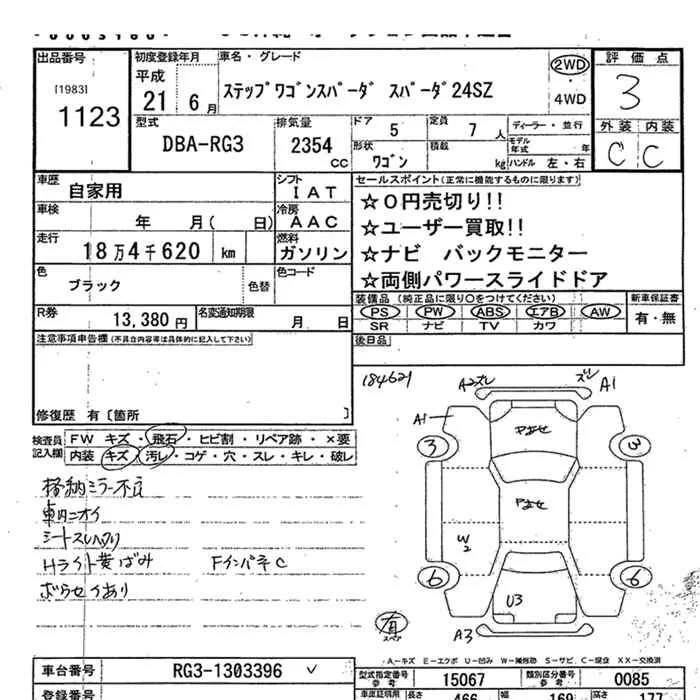 出品番号
[1983]
1123
初度登録年月
平成
21年 6月
車名・グレード
ステップワゴンスパーダ スパーダ24SZ
2WD
・
4WD
評価点
3
外装 内装
C C
型式
DBA-RG3
排気量
2354
CC
ドア 5
定員 7人
ディーラー・並行
形状 ワゴン
積載 kg
モデル年式 年
ハンドル 左・右
車歴
自家用
シフト
IAT
車検
年 月( 日)
冷房
AAC
走行
18万4千620 km
燃料
ガソリン
色
ブラック
色替
色コード
R券
13,380円
名変通知期限
月 日
セールスポイント(正常に機能するものに限ります)
☆0円売切り!!
☆ユーザー買取!!
☆ナビ バックモニター
☆両側パワースライドドア
装備品(純正品に限り○をつけてください)
PS PW ABS エアB AW
SR ナビ TV カワ
新車保証書
有・無
後日品
注意事項申告欄(不具合内容等は具体的に記入して下さい)
修復歴 有〔箇所 〕
検査員
記入欄
FW キズ・飛石・ヒビ割・リペア跡・×要
内装 キズ・汚レ・コゲ・穴・スレ・キレ・破レ
格納ミラー不良
車内ニオイ
Hライト黄ばみ
184621
A2ズレ
ズレ A1
A1
3
3
W2
6
6
U3
有
スペア
A3
A-キズ E-エクボ U-凹み W-補修跡 S-サビ C-腐食 XX-交換済
車台番号
RG3-1303396
型式指定番号
参考
15067
類別区分番号
参考
0085
登録番号
車庫証明用
長さ
466
幅
169
高さ
177